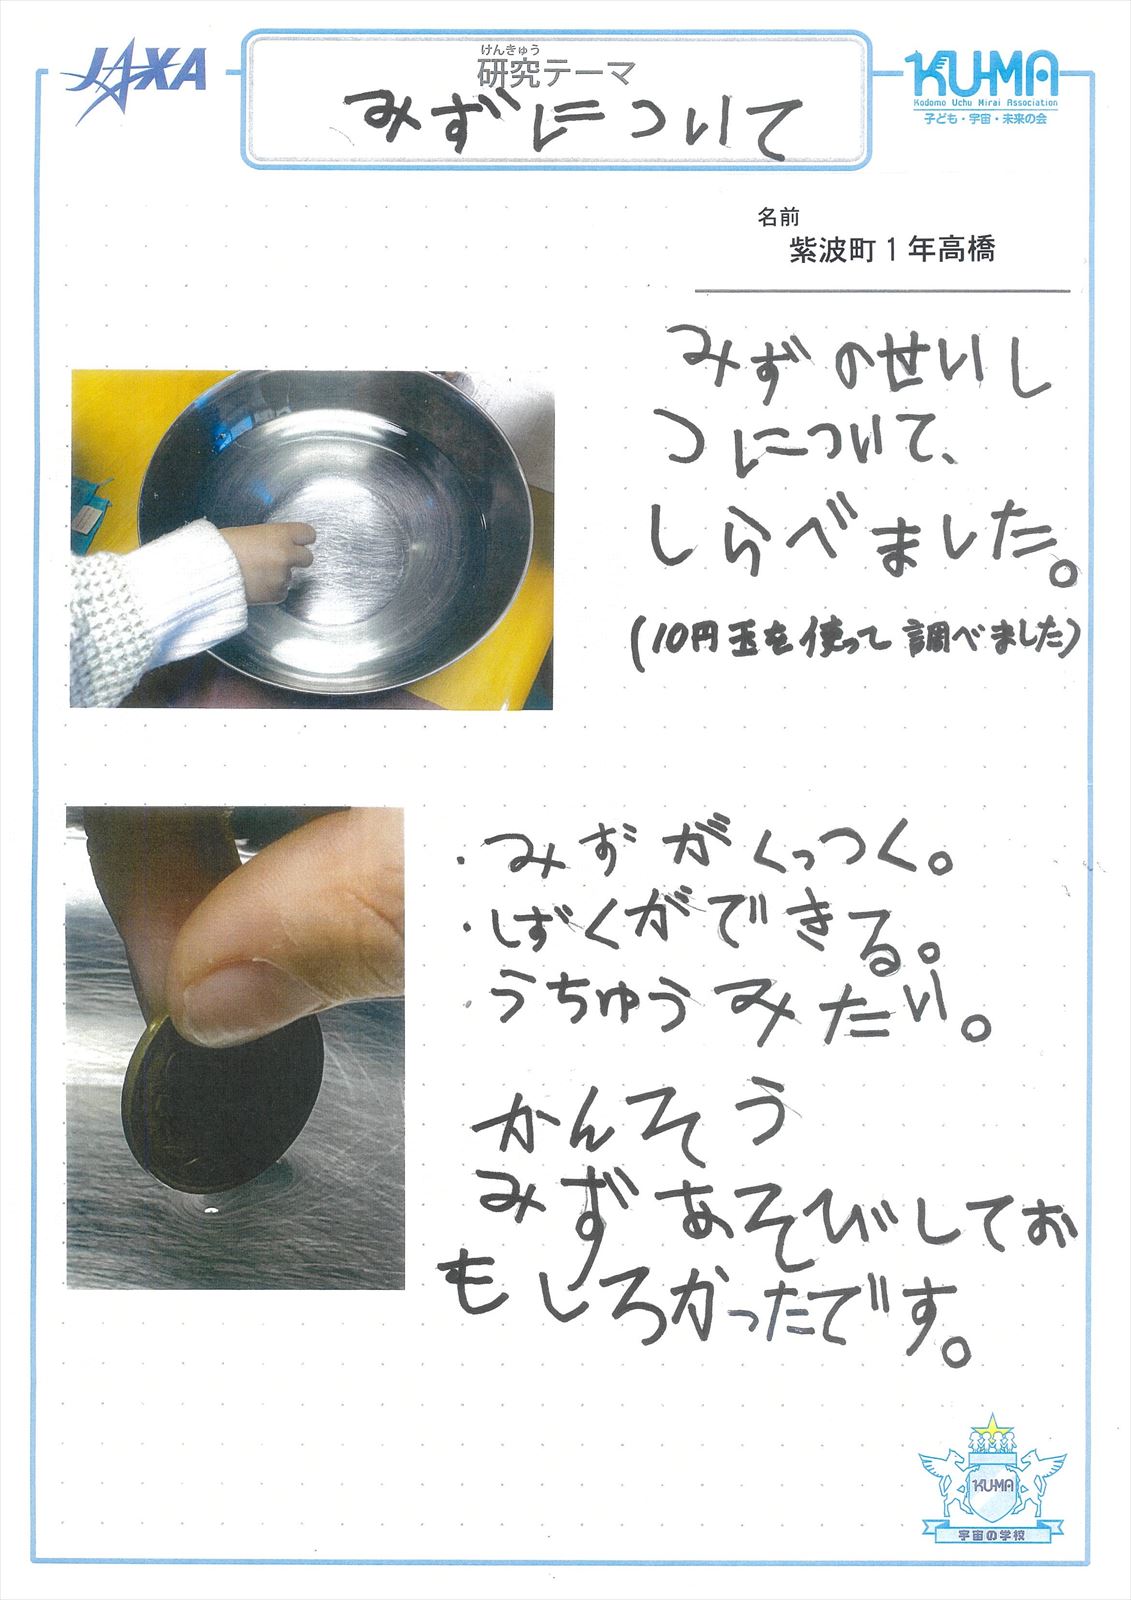 JAXA
けんきゅう
研究テーマ
みずについて
KU-MA
Kodomo Uchu Mirai Association
子ども・宇宙・未来の会
名前
紫波町1年高橋
みずのせいし
つについて、
しらべました。
(10円玉を使って調べました)
・みずがくっつく。
・しずくができる。
・うちゅうみたい。
かんそう
みずあそびしてお
もしろかったです。
KU-MA
宇宙の学校